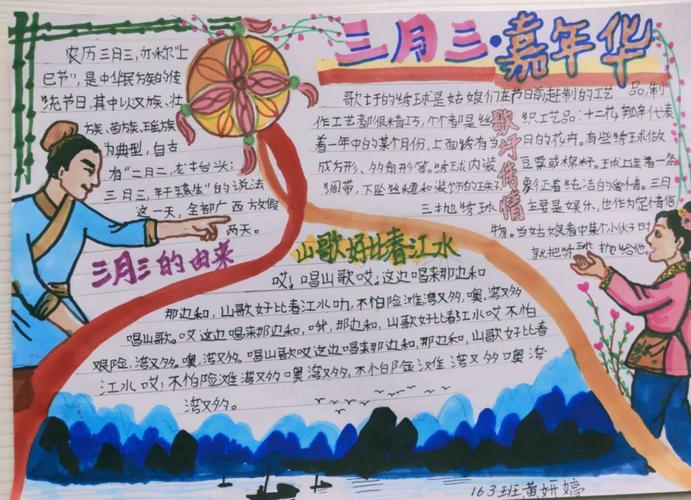 三月三·嘉年华
农历三月三,亦称"上
巳节",是中华民族的传
统节日,其中以汉族、壮
族、苗族、瑶族
为典型,自古
有"二月二,龙抬头;
三月三,轩辕生"的说法
这一天,全部广西放假
两天。
三月三的由来
歌圩的绣球是姑娘们在节日前赶制的工艺品,制
作工艺都很精巧,个个都是丝织工艺品:十二花瓣代表
着一年中的某个月份,上面绣有当月的花卉。有些绣球做
成方形、多角形等。绣球内装豆粟或棉籽。球上连着一条
绸带,下坠丝穗和装饰的珠
象征着纯洁的爱情。三月
三抛绣球
主要是娱乐,也作为定情信
物。当姑娘看中某个小伙子时
就把绣球抛给他。
歌圩传情
山歌好比春江水
哎,唱山歌哎。这边唱来那边和
那边和,山歌好比春江水,不怕险滩湾又多。噢,湾又多
唱山歌。哎这边唱来那边和,那边和,山歌好比春江水哎不怕
艰险,湾又多。噢,湾又多。唱山歌哎这边唱来那边和,那边和,山歌好比春
江水哎,不怕险滩湾又多噢湾又多,不怕险滩湾又多噢湾
湾又多。
163班黄妍婷